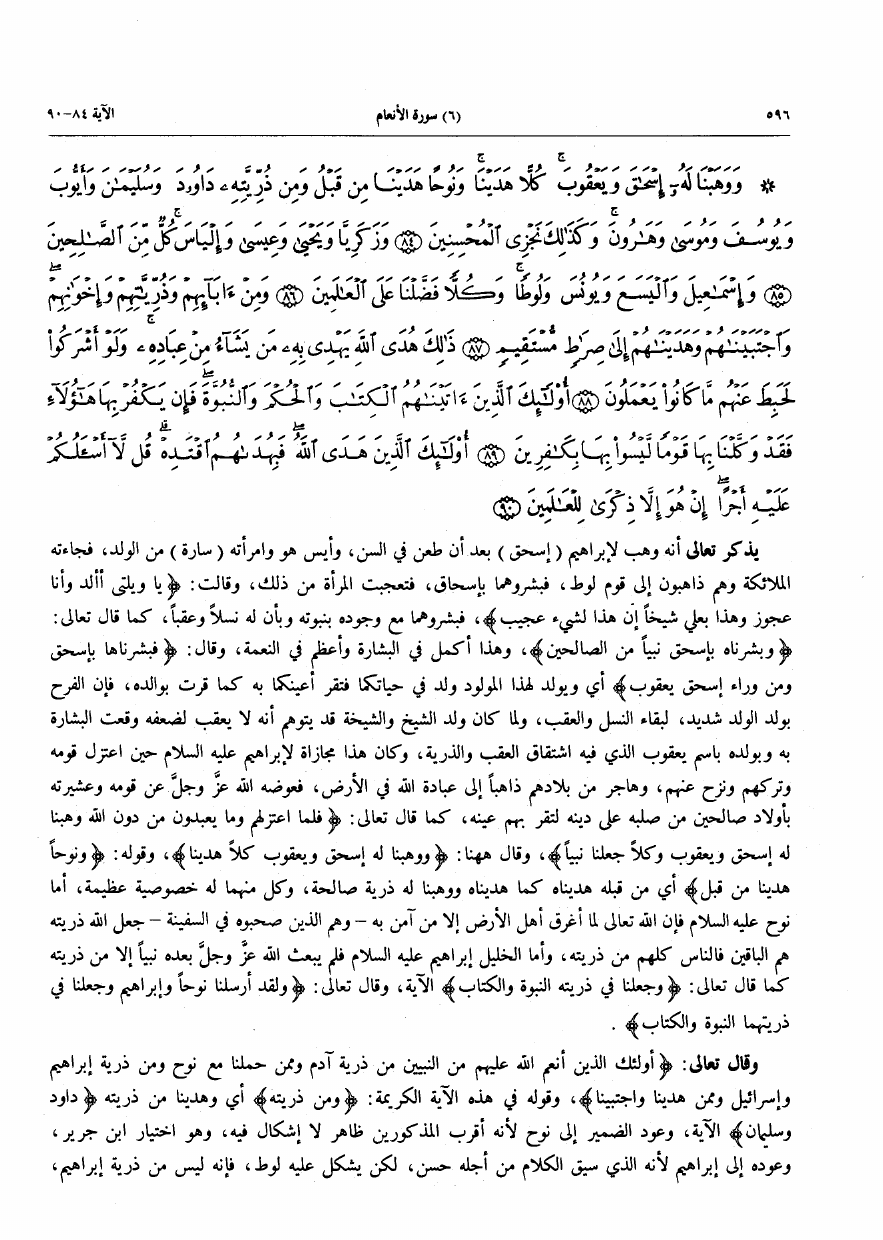 ٥٩٦ (٦) سورة الأنعام الآية ٨٤-٩٠
* وَوَهَبْنَا لَهُۥٓ إِسْحَٰقَ وَيَعْقُوبَ ۚ كُلًّا هَدَيْنَا ۚ وَنُوحًا هَدَيْنَا مِن قَبْلُ وَمِن ذُرِّيَّتِهِۦ دَاوُۥدَ وَسُلَيْمَٰنَ وَأَيُّوبَ
وَيُوسُفَ وَمُوسَىٰ وَهَٰرُونَ ۚ وَكَذَٰلِكَ نَجْزِى ٱلْمُحْسِنِينَ ﴿٨٤﴾ وَزَكَرِيَّا وَيَحْيَىٰ وَعِيسَىٰ وَإِلْيَاسَ ۚ كُلٌّ مِّنَ ٱلصَّٰلِحِينَ
﴿٨٥﴾ وَإِسْمَٰعِيلَ وَٱلْيَسَعَ وَيُونُسَ وَلُوطًا ۚ وَكُلًّا فَضَّلْنَا عَلَى ٱلْعَٰلَمِينَ ﴿٨٦﴾ وَمِنْ ءَابَآئِهِمْ وَذُرِّيَّٰتِهِمْ وَإِخْوَٰنِهِمْ ۖ
وَٱجْتَبَيْنَٰهُمْ وَهَدَيْنَٰهُمْ إِلَىٰ صِرَٰطٍ مُّسْتَقِيمٍ ﴿٨٧﴾ ذَٰلِكَ هُدَى ٱللَّهِ يَهْدِى بِهِۦ مَن يَشَآءُ مِنْ عِبَادِهِۦ ۚ وَلَوْ أَشْرَكُوا۟
لَحَبِطَ عَنْهُم مَّا كَانُوا۟ يَعْمَلُونَ ﴿٨٨﴾ أُو۟لَٰٓئِكَ ٱلَّذِينَ ءَاتَيْنَٰهُمُ ٱلْكِتَٰبَ وَٱلْحُكْمَ وَٱلنُّبُوَّةَ ۖ فَإِن يَكْفُرْ بِهَا هَٰٓؤُلَآءِ
فَقَدْ وَكَّلْنَا بِهَا قَوْمًا لَّيْسُوا۟ بِهَا بِكَٰفِرِينَ ﴿٨٩﴾ أُو۟لَٰٓئِكَ ٱلَّذِينَ هَدَى ٱللَّهُ ۖ فَبِهُدَىٰهُمُ ٱقْتَدِهْ ۗ قُل لَّآ أَسْـَٔلُكُمْ
عَلَيْهِ أَجْرًا ۖ إِنْ هُوَ إِلَّا ذِكْرَىٰ لِلْعَٰلَمِينَ ﴿٩٠﴾
يذكر تعالى أنه وهب لإبراهيم (إسحق) بعد أن طعن في السن، وأيس هو وامرأته (سارة) من الولد، فجاءته
الملائكة وهم ذاهبون إلى قوم لوط، فبشروهما بإسحاق، فتعجبت المرأة من ذلك، وقالت: ﴿يا ويلتى أألد وأنا
عجوز وهذا بعلي شيخاً إن هذا لشيء عجيب﴾، فبشروهما مع وجوده بنبوته وبأن له نسلاً وعقباً، كما قال تعالى:
﴿وبشرناه بإسحق نبياً من الصالحين﴾، وهذا أكمل في البشارة وأعظم في النعمة، وقال: ﴿فبشرناها بإسحق
ومن وراء إسحق يعقوب﴾ أي ويولد لهذا المولود ولد في حياتكما فتقر أعينكما به كما قرت بوالده، فإن الفرح
بولد الولد شديد، لبقاء النسل والعقب، ولما كان ولد الشيخ والشيخة قد يتوهم أنه لا يعقب لضعفه وقعت البشارة
به وبولده باسم يعقوب الذي فيه اشتقاق العقب والذرية، وكان هذا مجازاة لإبراهيم عليه السلام حين اعتزل قومه
وتركهم ونزح عنهم، وهاجر من بلادهم ذاهباً إلى عبادة الله في الأرض، فعوضه الله عزَّ وجلَّ عن قومه وعشيرته
بأولاد صالحين من صلبه على دينه لتقر بهم عينه، كما قال تعالى: ﴿فلما اعتزلهم وما يعبدون من دون الله وهبنا
له إسحق ويعقوب وكلاً جعلنا نبياً﴾، وقال ههنا: ﴿ووهبنا له إسحق ويعقوب كلاً هدينا﴾، وقوله: ﴿ونوحاً
هدينا من قبل﴾ أي من قبله هديناه كما هديناه ووهبنا له ذرية صالحة، وكل منهما له خصوصية عظيمة، أما
نوح عليه السلام فإن الله تعالى لما أغرق أهل الأرض إلا من آمن به - وهم الذين صحبوه في السفينة - جعل الله ذريته
هم الباقين فالناس كلهم من ذريته، وأما الخليل إبراهيم عليه السلام فلم يبعث الله عزَّ وجلَّ بعده نبياً إلا من ذريته
كما قال تعالى: ﴿وجعلنا في ذريته النبوة والكتاب﴾ الآية، وقال تعالى: ﴿ولقد أرسلنا نوحاً وإبراهيم وجعلنا في
ذريتهما النبوة والكتاب﴾ .
وقال تعالى: ﴿أولئك الذين أنعم الله عليهم من النبيين من ذرية آدم وممن حملنا مع نوح ومن ذرية إبراهيم
وإسرائيل وممن هدينا واجتبينا﴾، وقوله في هذه الآية الكريمة: ﴿ومن ذريته﴾ أي وهدينا من ذريته ﴿داود
وسليمان﴾ الآية، وعود الضمير إلى نوح لأنه أقرب المذكورين ظاهر لا إشكال فيه، وهو اختيار ابن جرير،
وعوده إلى إبراهيم لأنه الذي سيق الكلام من أجله حسن، لكن يشكل عليه لوط، فإنه ليس من ذرية إبراهيم،